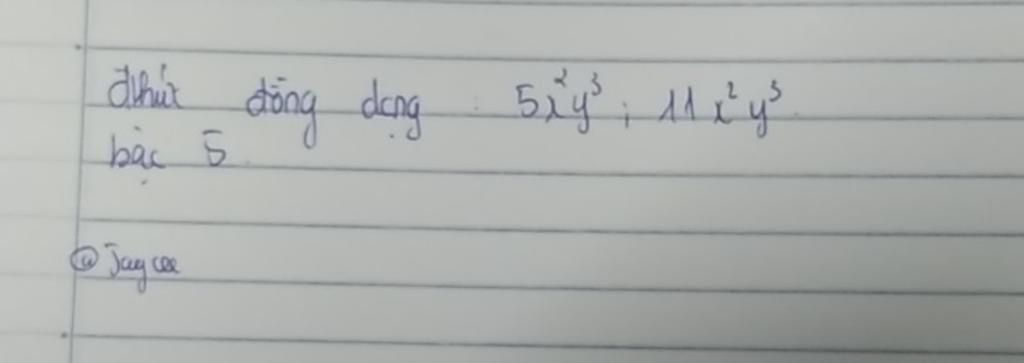 đthức đồng dạng : 5x²y³ ; 11x²y³
bậc 5
@Jaycee